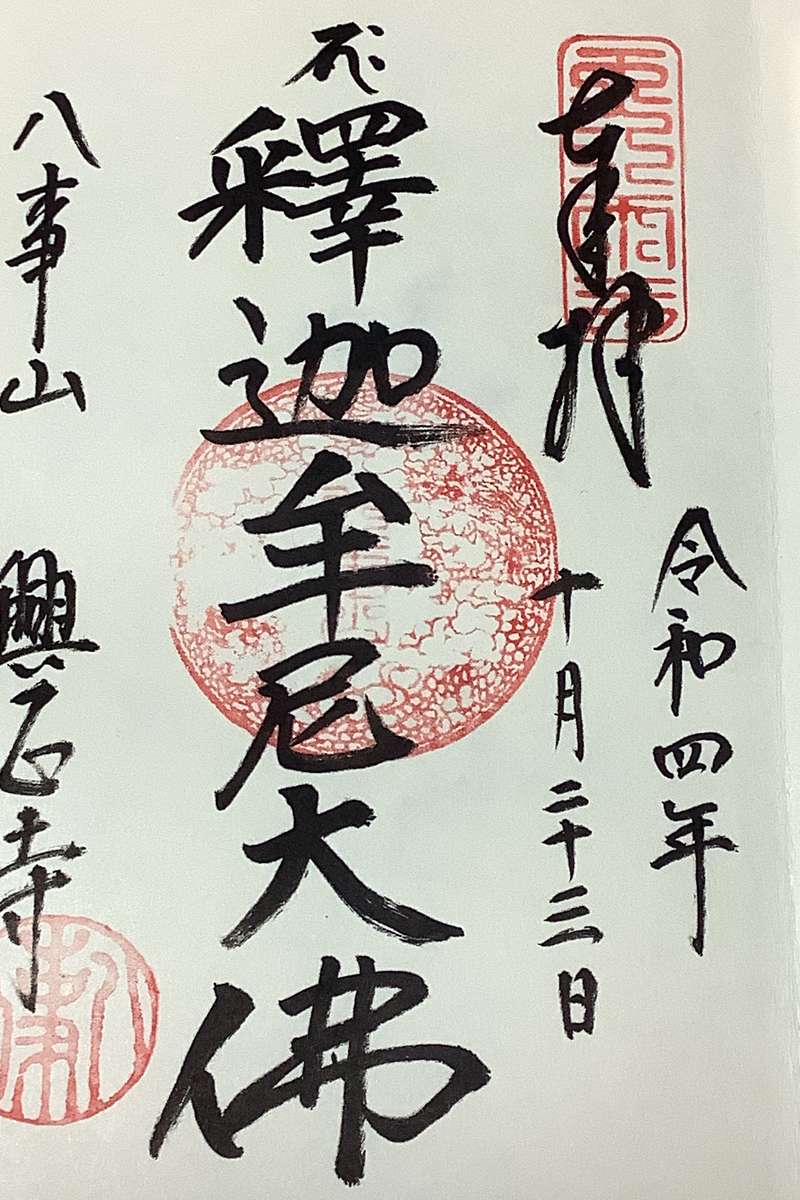 奉拝
令和四年
十月二十三日
釋迦牟尼大佛
八事山
興正寺